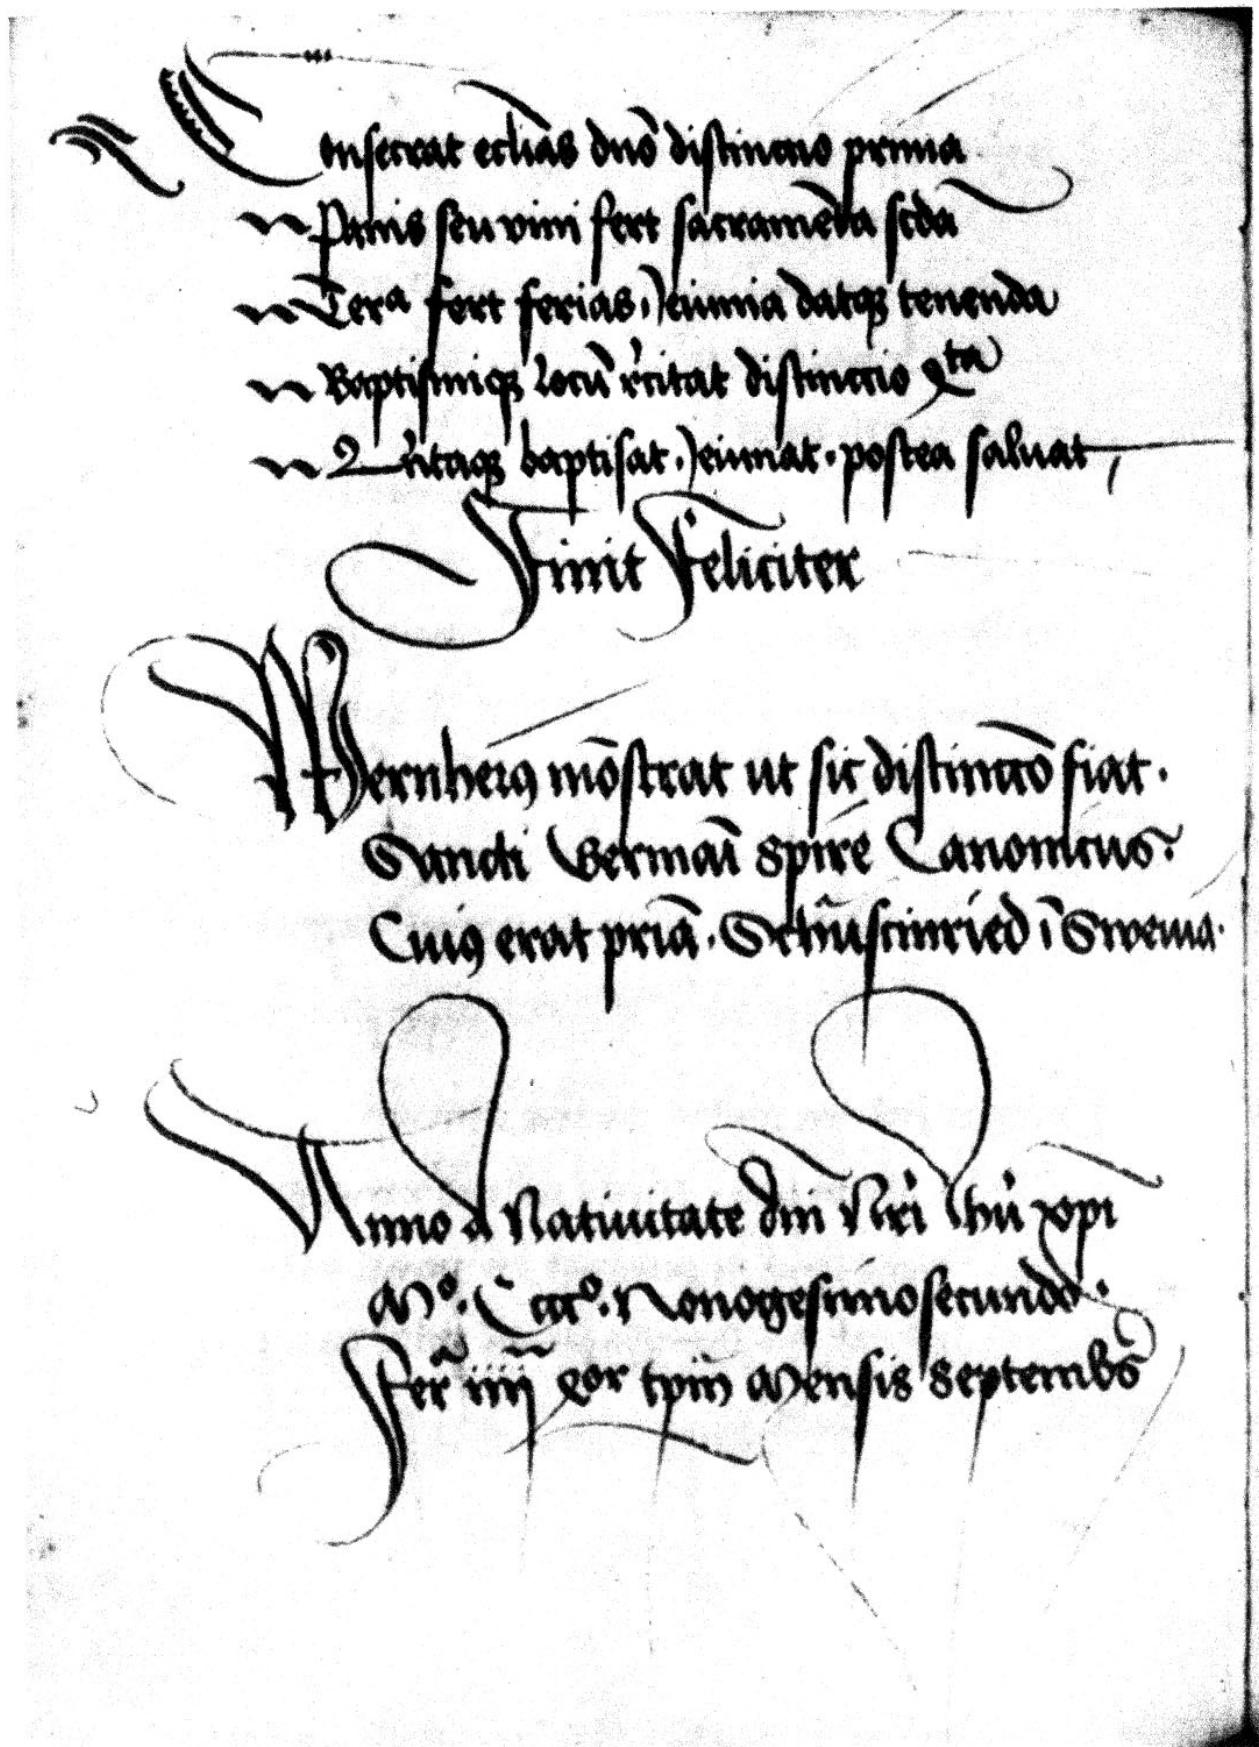 Consecrat eccl̄ias dn̄o distinctio prima
Panis seu vini fert sacramēta scd̄a
Tercᵃ fert ferias. Jeiunia datqꝫ tenenda
Baptismiqꝫ locū rēcitat distinctio qᵗᵃ
baptisat. Jeiunat. postea saluat
Finit Feliciter
Wernherꝰ mōstrat ut sic distinctō fiat.
Sancti Germāi Spirē Canonicus.
Cuiꝰ erat pr̄ia. in Sweuia.
Anno a Natiuitate dn̄i Nr̄i Jhū xp̄i
Mº. Ccccº. Nonogesimo secundo.
Fer̄ iiij qor tpm̄ Mensis Septembr̄